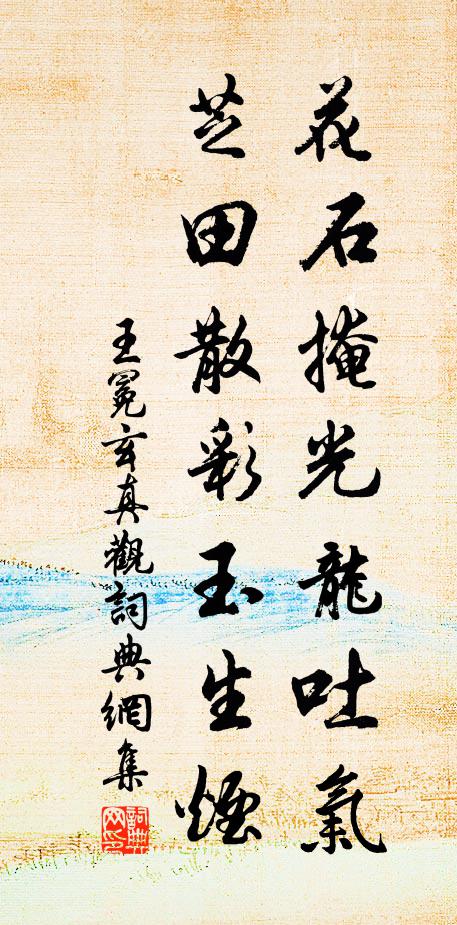 花石掩光龍吐氣
芝田散彩玉生煙
王冕玄真觀詞典網集
詞典網印